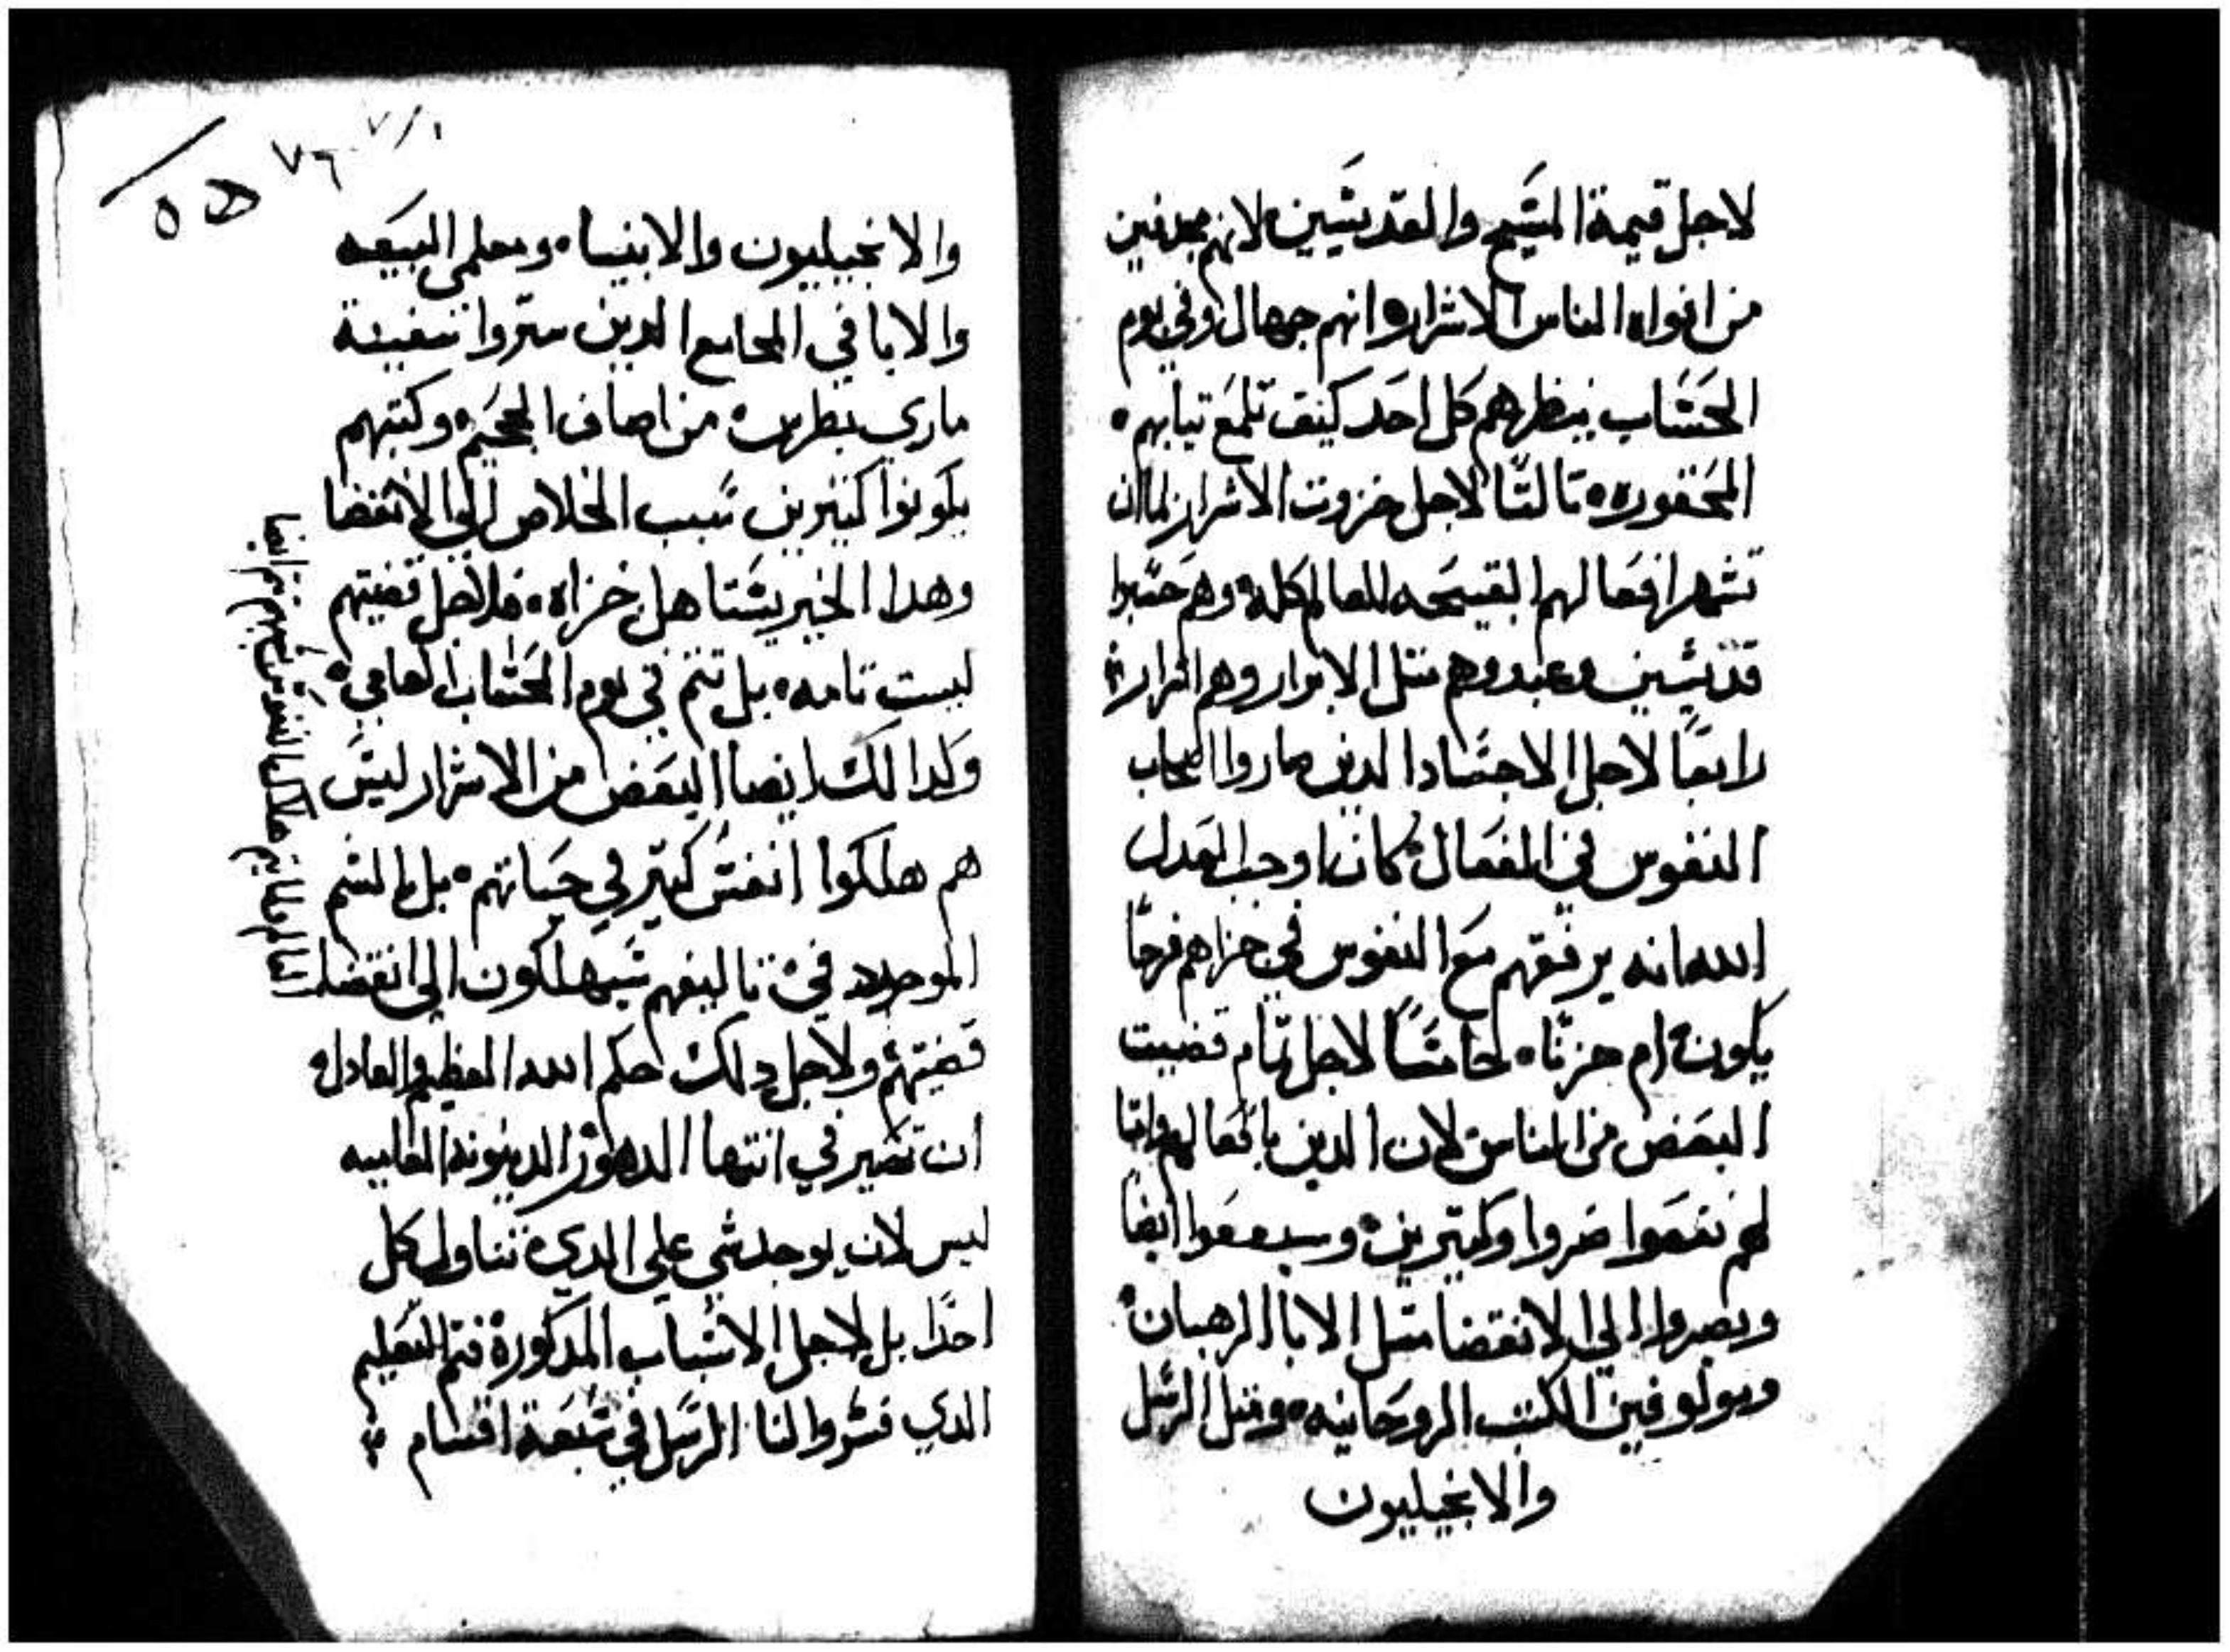 لاجل قيمة المسيح والقديسين لانهم مجدفين
من افواه الناس الاشرار وانهم جهال وفي يوم
الحساب ينظرهم كل احد كيف تلمع تيابهم
المحقوره تالتا لاجل خزوت الاشرار لما ان
تشهر افعالهم القبيحه للعالم كله وهم حسبوا
قديسين وعبدوهم متل الابرار وهم اشرار
رابعا لاجل الاجساد الدين صاروا اصحاب
النفوس في الفعال كان اوجب العدل
الله انه يرفقهم مع النفوس في جزاهم فرحا
يكون ام حزنا خامسا لاجل تمام قضيت
البعض من الناس لان الدين بافعالهم واما
لهم نفعوا ضروا وكتيرين وسينفعوا ايضا
ويضروا الي الانقضا متل الابا الرهبان
ويولوفين الكتب الروحانيه ومتل الرسل
والانجيليون
٧/١
٧٦
٥٥
والانجيليون والانبياء ومعلمي البيعه
والابا في المجامع الدين ستروا سفينة
ماري بطرس من اصاف الجحيم وكتبهم
يكونوا كتيرين سبب الخلاص الي الانقضا
وهدا الخير يستاهل جزاه فلاجل قضيتهم
ليست تامه بل تتم في يوم الحساب العامي
وكدالك ايضا البعض من الاشرار ليس
هم هلكوا انفس كتير في حياتهم بل بالسم
الموجود في تاليفهم سيهلكون الي انقضا
قضيتهم ولاجل دلك حكم الله العظيم والعادل
ان تصير في انتها الدهور الدينونه العاليه
ليس لان يوجد شي علي الدي تناول كل
احدا بل لاجل الاسباب المدكورة فتم التعليم
الدي فسروا لنا الرسل في سبعة اقسام